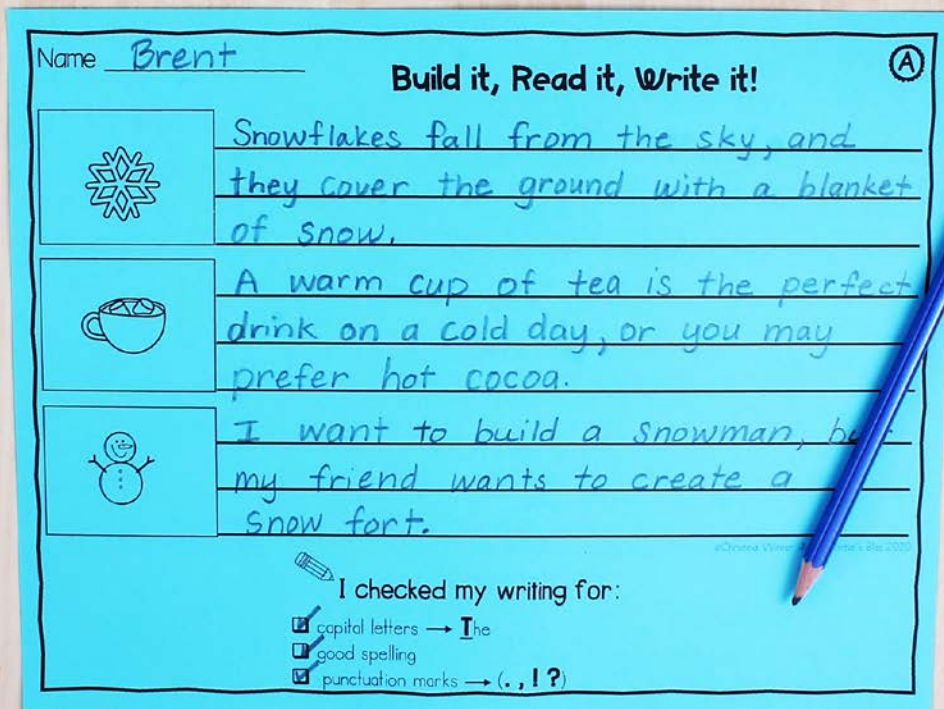 Name Brent
Build it, Read it, Write it!
A
Snowflakes fall from the sky, and
they cover the ground with a blanket
of snow.
A warm cup of tea is the perfect
drink on a cold day, or you may
prefer hot cocoa.
I want to build a snowman,
my friend wants to create a
snow fort.
©Christina Winter
2020
I checked my writing for:
capital letters → The
good spelling
punctuation marks → (. , ! ?)